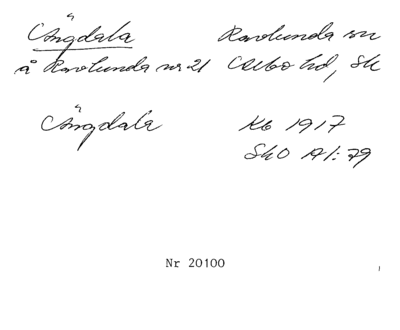 Ängdala Ravlunda sn
å Ravlunda nr 21 Albo hd, Sk
Ängdala Kb 1917
SkO A1:79
Nr 20100